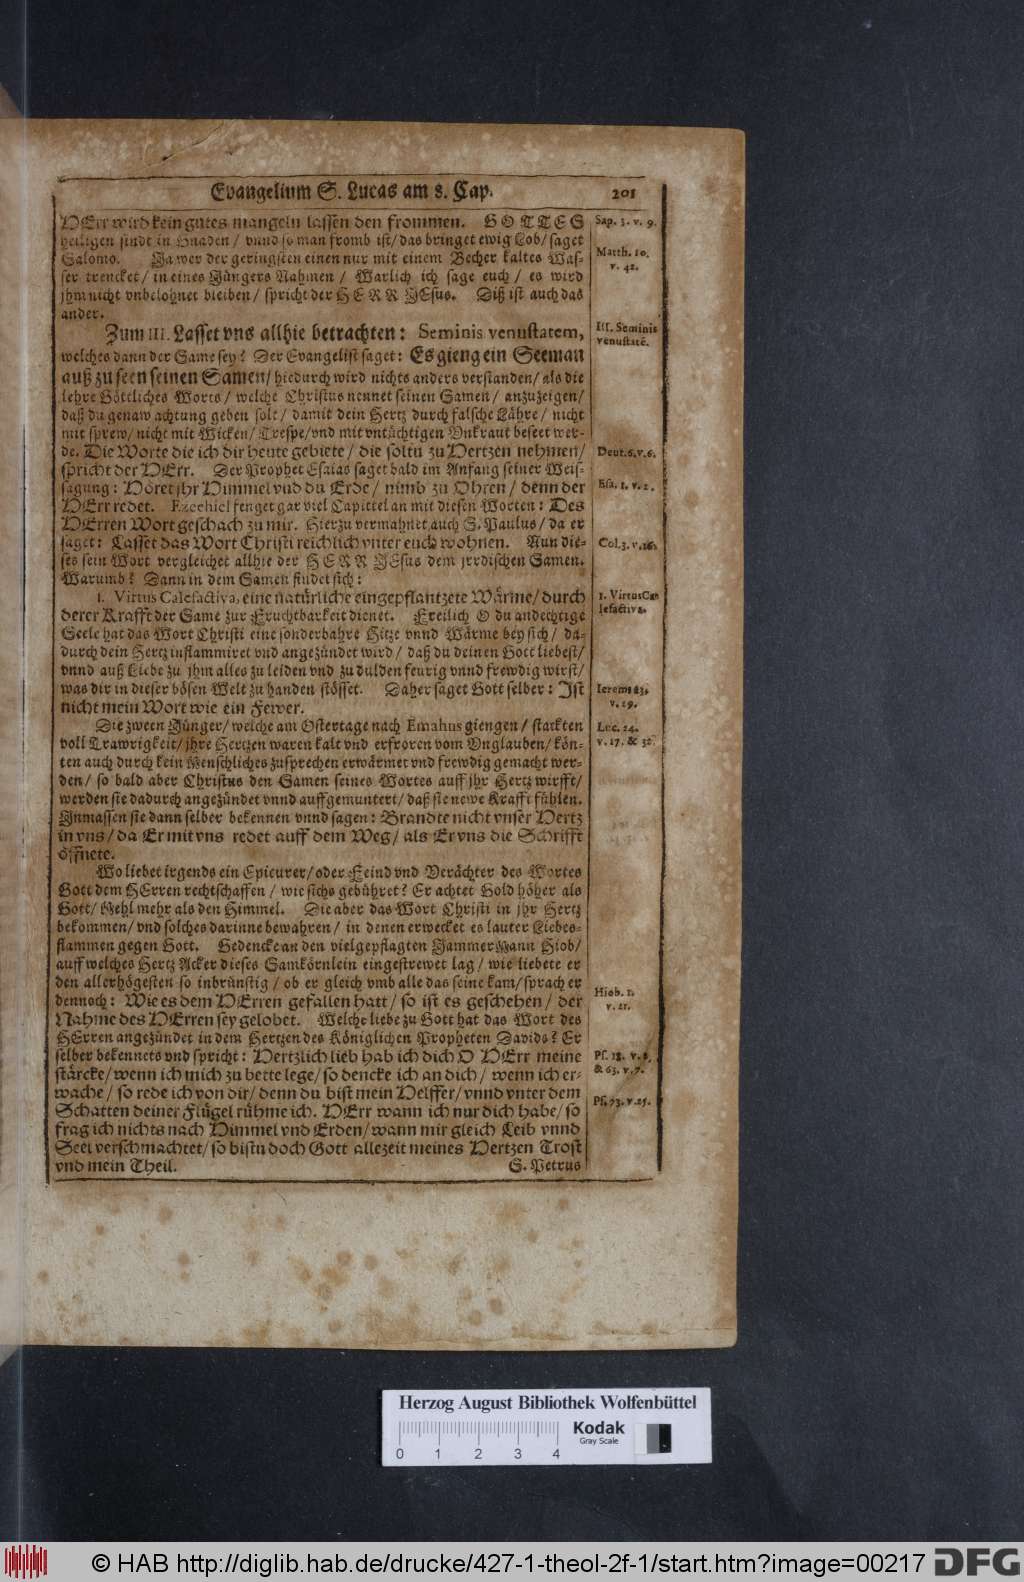 Evangelium S. Lucas am 8. Cap. 201
HErr wird kein gutes mangeln lassen den frommen. GOTTES
heiligen sindt in Gnaden / vnnd so man fromb ist / das bringet ewig Lob / saget
Salomo. Ja wer der geringsten einen nur mit einem Becher kaltes Was-
ser trencket / in eines Jüngers Nahmen / Warlich ich sage euch / es wird
jhm nicht vnbelohnet bleiben / spricht der HERR JEsus. Diß ist auch das
ander.
Zum III. Lasset vns allhie betrachten: Seminis venustatem,
welches dann der Same sey? Der Evangelist saget: Es gieng ein Seeman
auß zu seen seinen Samen / hiedurch wird nichts anders verstanden / als die
lehre Göttliches Worts / welche Christus nennet seinen Samen / anzuzeigen /
daß du genaw achtung geben solt / damit dein Hertz durch falsche Lähre / nicht
mit sprew / nicht mit Wicken / Trespe / vnd mit vntüchtigen Vnkraut beseet wer-
de. Die Worte die ich dir heute gebiete / die soltu zu Hertzen nehmen /
spricht der HErr. Der Prophet Esaias saget bald im Anfang seiner Weis-
sagung: Höret jhr Himmel vnd du Erde / nimb zu Ohren / denn der
HErr redet. Ezechiel fenget gar viel Capittel an mit diesen Worten: Des
HErren Wort geschach zu mir. Hierzu vermahnet auch S. Paulus / da er
saget: Lasset das Wort Christi reichlich vnter euch wohnen. Nun die-
ses sein Wort vergleichet allhie der HERR JEsus dem jrrdischen Samen.
Warumb? Dann in dem Samen findet sich:
1. Virtus Calefactiva, eine natürliche eingepflantzete Wärme / durch
derer Krafft der Same zur Fruchtbarkeit dienet. Freilich O du andechtige
Seele hat das Wort Christi eine sonderbahre Hitze vnnd Wärme bey sich / da-
durch dein Hertz inflammiret vnd angezündet wird / daß du deinen Gott liebest /
vnnd auß Liebe zu jhm alles zu leiden vnd zu dulden feurig vnnd frewdig wirst /
was dir in dieser bösen Welt zu handen stösset. Daher saget Gott selber: Ist
nicht mein Wort wie ein Fewer.
Die zween Jünger / welche am Ostertage nach Emahus giengen / stackten
voll Trawrigkeit / jhre Hertzen waren kalt vnd erfroren vom Vnglauben / kön-
ten auch durch kein Menschliches zusprechen erwärmet vnd frewdig gemacht wer-
den / so bald aber Christus den Samen seines Wortes auff jhr Hertz wirfft /
werden sie dadurch angezündet vnnd auffgemuntert / daß sie newe Krafft fühlen.
Inmassen sie dann selber bekennen vnnd sagen: Brandte nicht vnser Hertz
in vns / da Er mit vns redet auff dem Weg / als Er vns die Schrifft
öffnete.
Wo liebet irgends ein Epicurer / oder Feind vnd Verächter des Wortes
Gott dem HErren rechtschaffen / wie sichs gebühret? Er achtet Gold höher als
Gott / Gehl mehr als den Himmel. Die aber das Wort Christi in jhr Hertz
bekommen / vnd solches darinne bewahren / in denen erwecket es lauter Liebes-
flammen gegen Gott. Gedencke an den vielgeplagten Jammer Mann Hiob /
auff welches Hertz Acker dieses Samkörnlein eingestrewet lag / wie liebete er
den allerhögesten so inbrünstig / ob er gleich vmb alle das seine kam / sprach er
dennoch: Wie es dem HErren gefallen hatt / so ist es geschehen / der
Nahme des HErren sey gelobet. Welche liebe zu Gott hat das Wort des
HErren angezündet in dem Hertzen des Königlichen Propheten Davids? Er
selber bekennets vnd spricht: Hertzlich lieb hab ich dich O HErr meine
stärcke / wenn ich mich zu bette lege / so dencke ich an dich / wenn ich er-
wache / so rede ich von dir / denn du bist mein Helffer / vnnd vnter dem
Schatten deiner Flügel rühme ich. HErr wann ich nur dich habe / so
frag ich nichts nach Himmel vnd Erden / wann mir gleich Leib vnnd
Seel verschmachtet / so bistu doch Gott allezeit meines Hertzen Trost
vnd mein Theil. S. Petrus
Sap. 3. v. 9.
Matth. 10.
v. 42.
III. Seminis
venustatē.
Deut. 6. v. 6.
Esa. 1. v. 2.
Col. 3. v. 16.
1. Virtus Ca-
lefactiva.
Ierem. 23.
v. 29.
Luc. 24.
v. 17. & 32.
Hiob. 1.
v. 21.
Ps. 18. v. 2.
& 63. v. 7.
Ps. 73. v. 25.
Herzog August Bibliothek Wolfenbüttel
0 1 2 3 4
Kodak
Gray Scale
© HAB http://diglib.hab.de/drucke/427-1-theol-2f-1/start.htm?image=00217 DFG